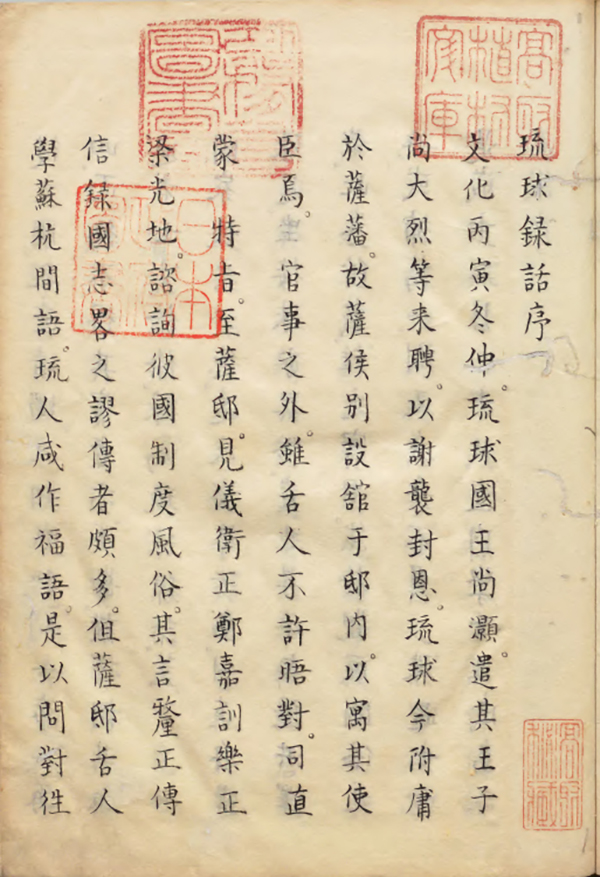 琉球録話序
文化丙寅冬仲。琉球國王尚灝。遣其王子
尚大烈等来聘。以謝襲封恩。琉球今附庸
於薩藩。故薩侯別設舘于邸内。以寓其使
臣焉。官事之外。雖舌人不許晤對。司直
蒙　特旨。至薩邸。見儀衛正鄭嘉訓樂正
梁光地。諮詢彼國制度風俗。其言釐正傳
信録國志畧之謬傳者頗多。但薩邸舌人
學蘇杭間語。琉人咸作福語。是以問對徃
高取植村家庫
日本政府圖書